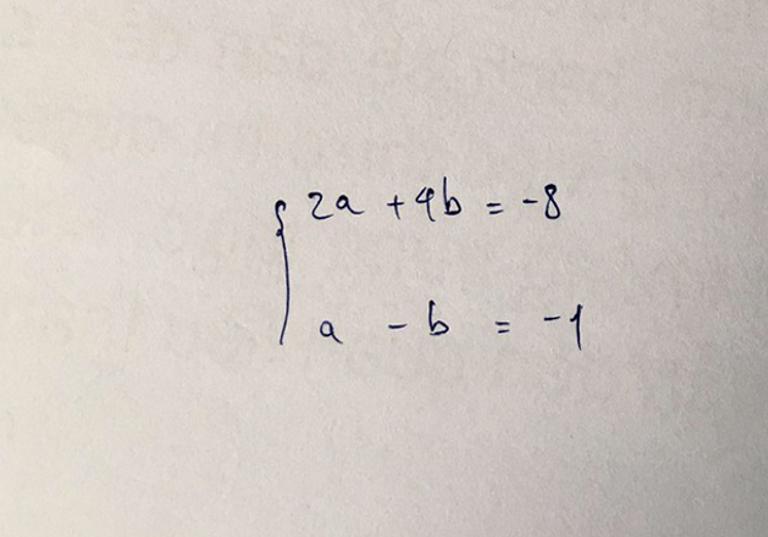 2a + 4b = -8
a - b = -1